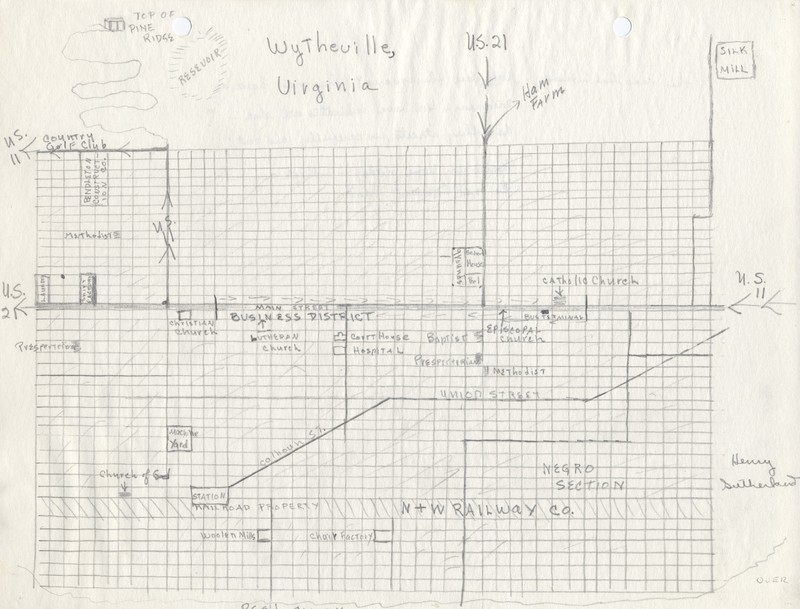 TOP OF
PINE
RIDGE
RESEVOIR
Wytheville,
Virginia
U.S. 21
Ham
Farm
SILK
MILL
U.S.
11
COUNTRY
Golf Club
PENDLETON
CONSTRUCT-
ION CO.
Methodist
U.S.
U.S.
21
U.S.
11
School
House
CATholic Church
MAIN STREET
BUSINESS DISTRICT
BUS TERMINAL
CHRISTIAN
Church
LUTHERAN
church
Court House
HospitAL
Baptist
EPISCOPAL
church
Methodist
UNION STREET
Calhoun St.
Machine
Yard
Church of God
STATION
RAILROAD PROPERTY
N+W RAILWAY CO.
NEGRO
SECTION
Henry
Sutherland
Woolen Mills
Chair Factory
OVER